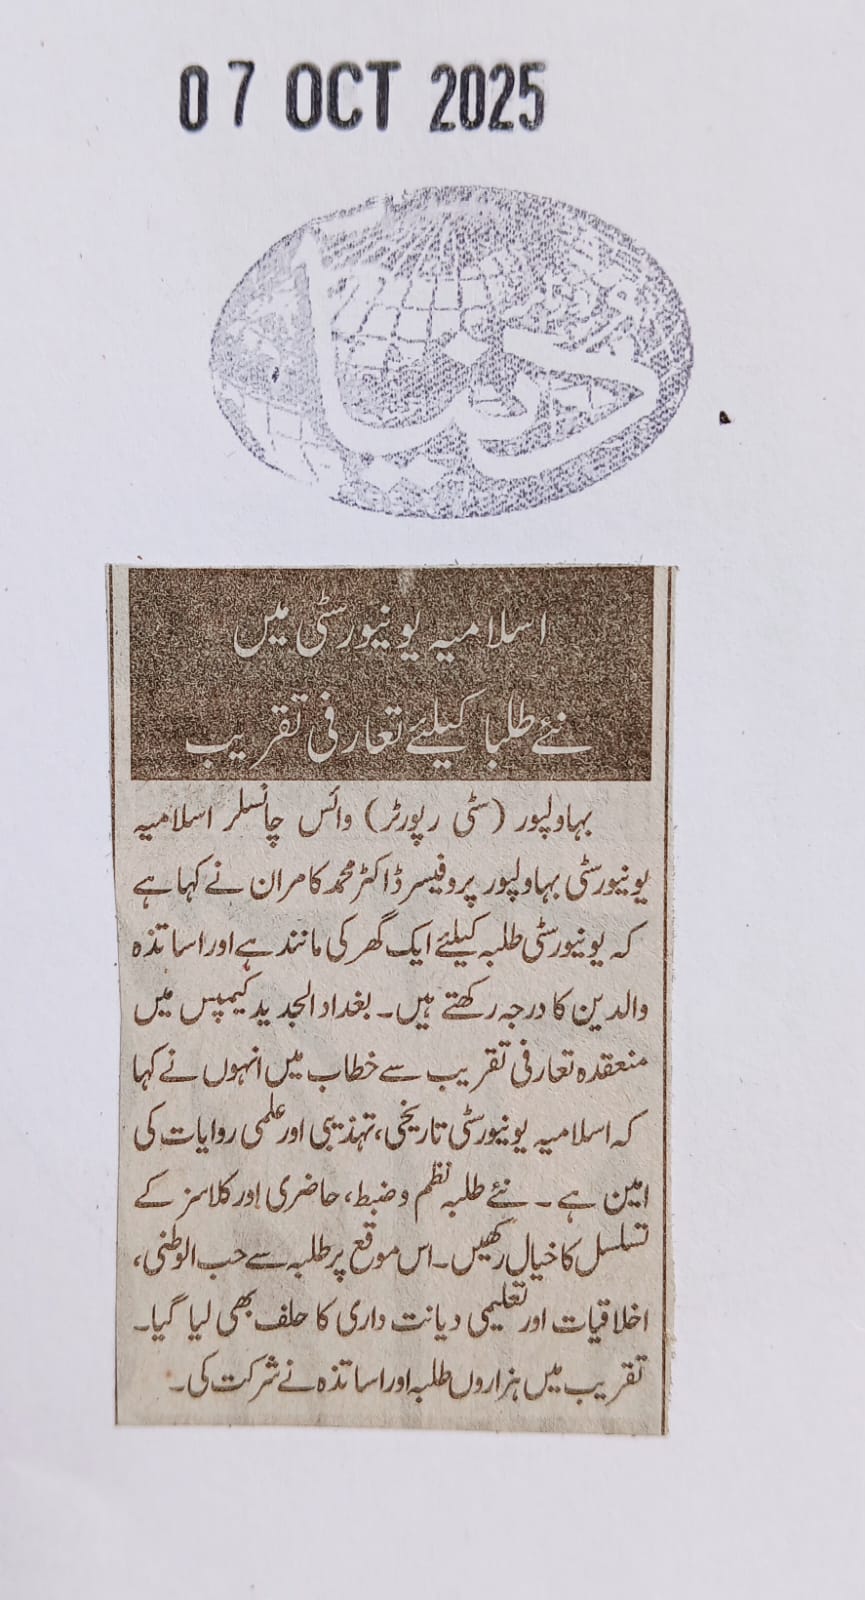 07 OCT 2025
دنیا
اسلامیہ یونیورسٹی میں
نئے طلبا کیلئے تعارفی تقریب
بہاولپور (سٹی رپورٹر) وائس چانسلر اسلامیہ
یونیورسٹی بہاولپور پروفیسر ڈاکٹر محمد کامران نے کہا ہے
کہ یونیورسٹی طلبہ کیلئے ایک گھر کی مانند ہے اور اساتذہ
والدین کا درجہ رکھتے ہیں۔ بغداد الجدید کیمپس میں
منعقدہ تعارفی تقریب سے خطاب میں انہوں نے کہا
کہ اسلامیہ یونیورسٹی تاریخی، تہذیبی اور علمی روایات کی
امین ہے۔ نئے طلبہ نظم و ضبط، حاضری اور کلاسز کے
تسلسل کا خیال رکھیں۔ اس موقع پر طلبہ سے حب الوطنی،
اخلاقیات اور تعلیمی دیانت داری کا حلف بھی لیا گیا۔
تقریب میں ہزاروں طلبہ اور اساتذہ نے شرکت کی۔